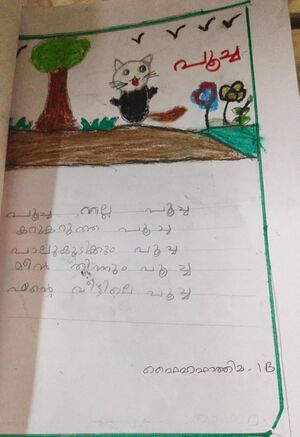 പൂച്ച
പൂച്ച നല്ല പൂച്ച
കറുകറുത്ത പൂച്ച
പാലുകുടിക്കും പൂച്ച
മീൻ തിന്നും പൂച്ച
എന്റെ വീട്ടിലെ പൂച്ച
1B